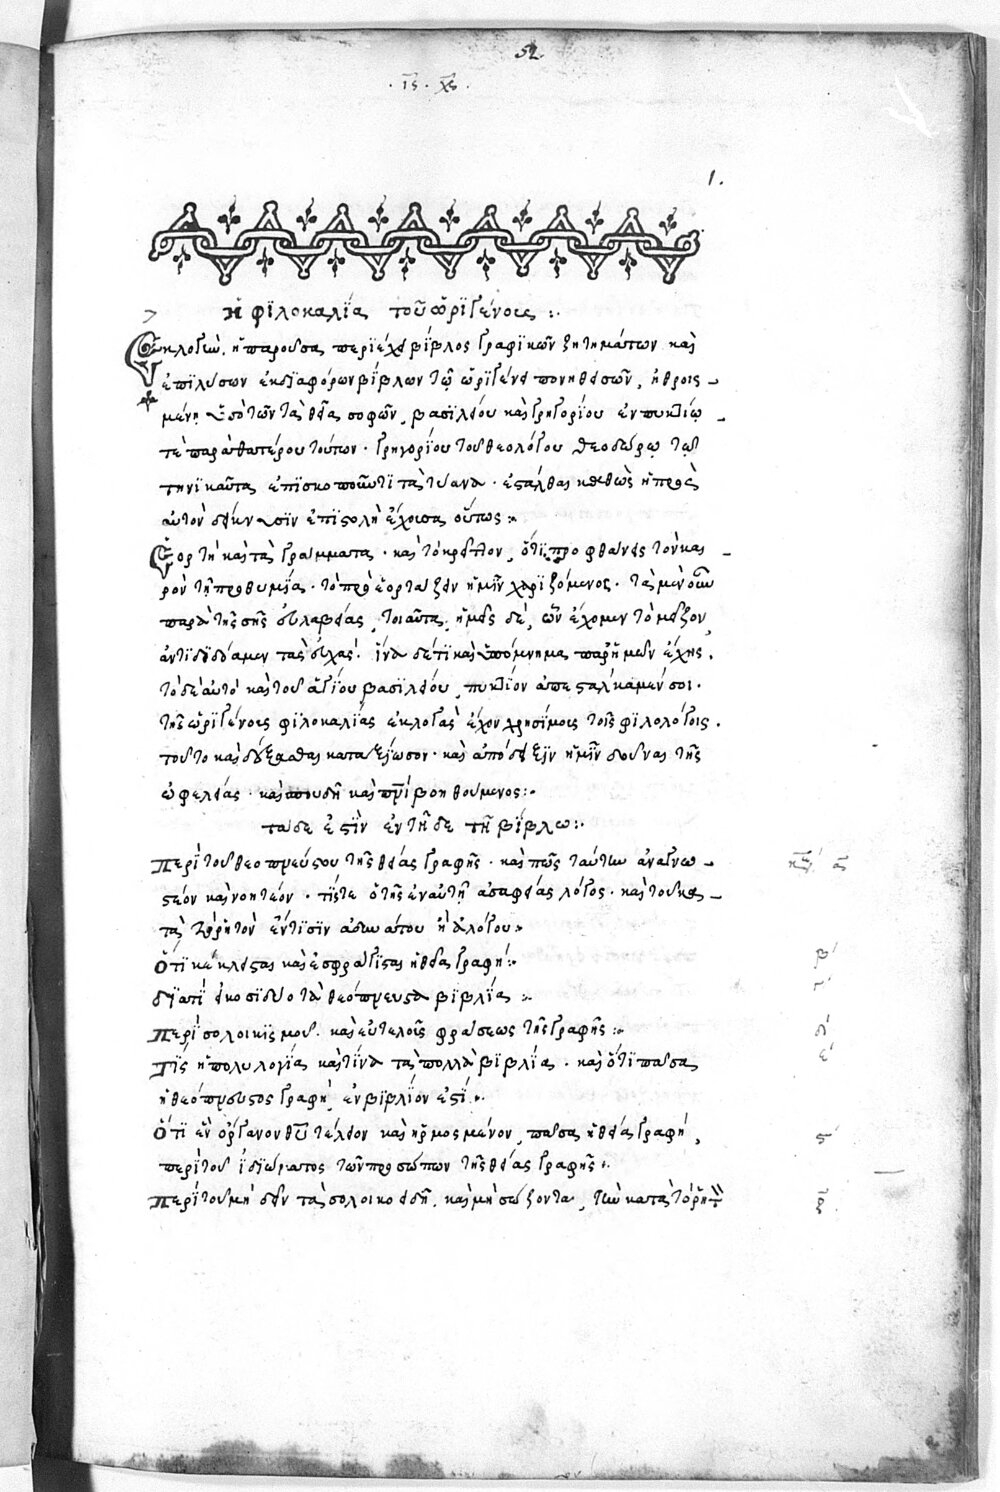 52
·ις·χς·
1.
Ἡ φϊλοκαλΐα τοῦ ὠρϊγένους :·
Ἐκλογὴν ἡ παροῦσα περϊέχει βίβλος γραφϊκῶν ζητημάτων καὶ
ἐπϊλύσεων ἐκ δϊαφόρων βίβλων τῶ ὠρϊγένει πονηθεισῶν, ἠθροισ-
μένη ὑπὸ τῶν τὰ θεῖα σοφῶν, βασϊλείου καὶ γρηγορίου ἐν πυκτίω
τὲ παρὰ θατέρου τούτων· γρηγορίου τοῦ θεολόγου θεοδώρω τῶ
τηνϊκαῦτα ἐπϊσκοποῦντϊ τὰ τύανα· ἐσάλθαι καθὼς ἡ πρὸς
αὐτὸν δείκνυσϊν ἐπϊστολὴ ἔχουσα οὕτως :·
Ἑορτὴ καὶ τὰ γράμματα· καὶ τὸ κρεῖττον, ὅτϊ προφθάνεις τὸν και-
ρὸν τῆ προθυμΐα· τὸ προεορτάζειν ἡμῖν χαρϊζόμενος· τὰ μὲν οὖν
παρὰ τῆς σῆς εὐλαβείας, τοιαῦτα, ἡμεῖς δὲ, ὧν ἔχομεν τὸ μεῖζον,
ἀντϊδϊδόαμεν τὰς εὐχάς· ἵνα δέ τϊ καὶ ὑπόμνημα παρ' ἡμῶν ἔχης,
τὸ δ' αὐτὸ καὶ τοῦ ἁγίου βασϊλείου, πυκτίον ἀπεσταλκαμέν σοι·
τῆς ὠρϊγένους φϊλοκαλίας ἐκλογὰς ἔχον χρησίμους τοῖς φϊλολόγοις·
τοῦτο καὶ δέξασθαι καταξίωσον· καὶ ἀπόδειξϊν ἡμῖν δοῦναι τῆς
ὠφελείας· καὶ σπουδῆ καὶ πνι βοηθούμενος :·
τάδε ἐστϊν ἐν τῆδε τῆ βίβλω :·
Περὶ τοῦ θεοπνεύστου τῆς θείας γραφῆς· καὶ πῶς ταύτην ἀναγνω-
στέον καὶ νοητέον· τίς τε ὁ τῆς ἐν αὐτῆ ἀσαφείας λόγος· καὶ τοῦ κα-
τὰ τὸ ῥητὸν ἔν τϊσϊν ἀδυνάτου ἢ ἀλόγου :·
α
Ὅτϊ κέκλεισται καὶ ἐσφράγϊσται ἡ θεία γραφή :·
β
δϊατί εἰκοσϊδύο τὰ θεόπνευστα βϊβλία :·
γ
Περὶ σολοικϊσμοῦ καὶ εὐτελοῦς φράσεως τῆς γραφῆς :·
δ
Τΐς ἡ πολυλογία καὶ τίνα τὰ πολλὰ βϊβλία· καὶ ὅτϊ πᾶσα
ε
ἡ θεόπνευστος γραφὴ, ἓν βϊβλΐον ἐστΐ :·
Ὅτϊ ἓν ὄργανον θυ τέλειον καὶ ἡρμοσμένον, πᾶσα ἡ θεία γραφή,
ς
περὶ τοῦ ἰδϊώματος τῶν προσώπων τῆς θείας γραφῆς :·
ζ
Περὶ τοῦ μὴ δεῖν τὰ σολοικοειδῆ, καὶ μὴ σώζοντα, τὴν κατὰ τὸ ῥητ